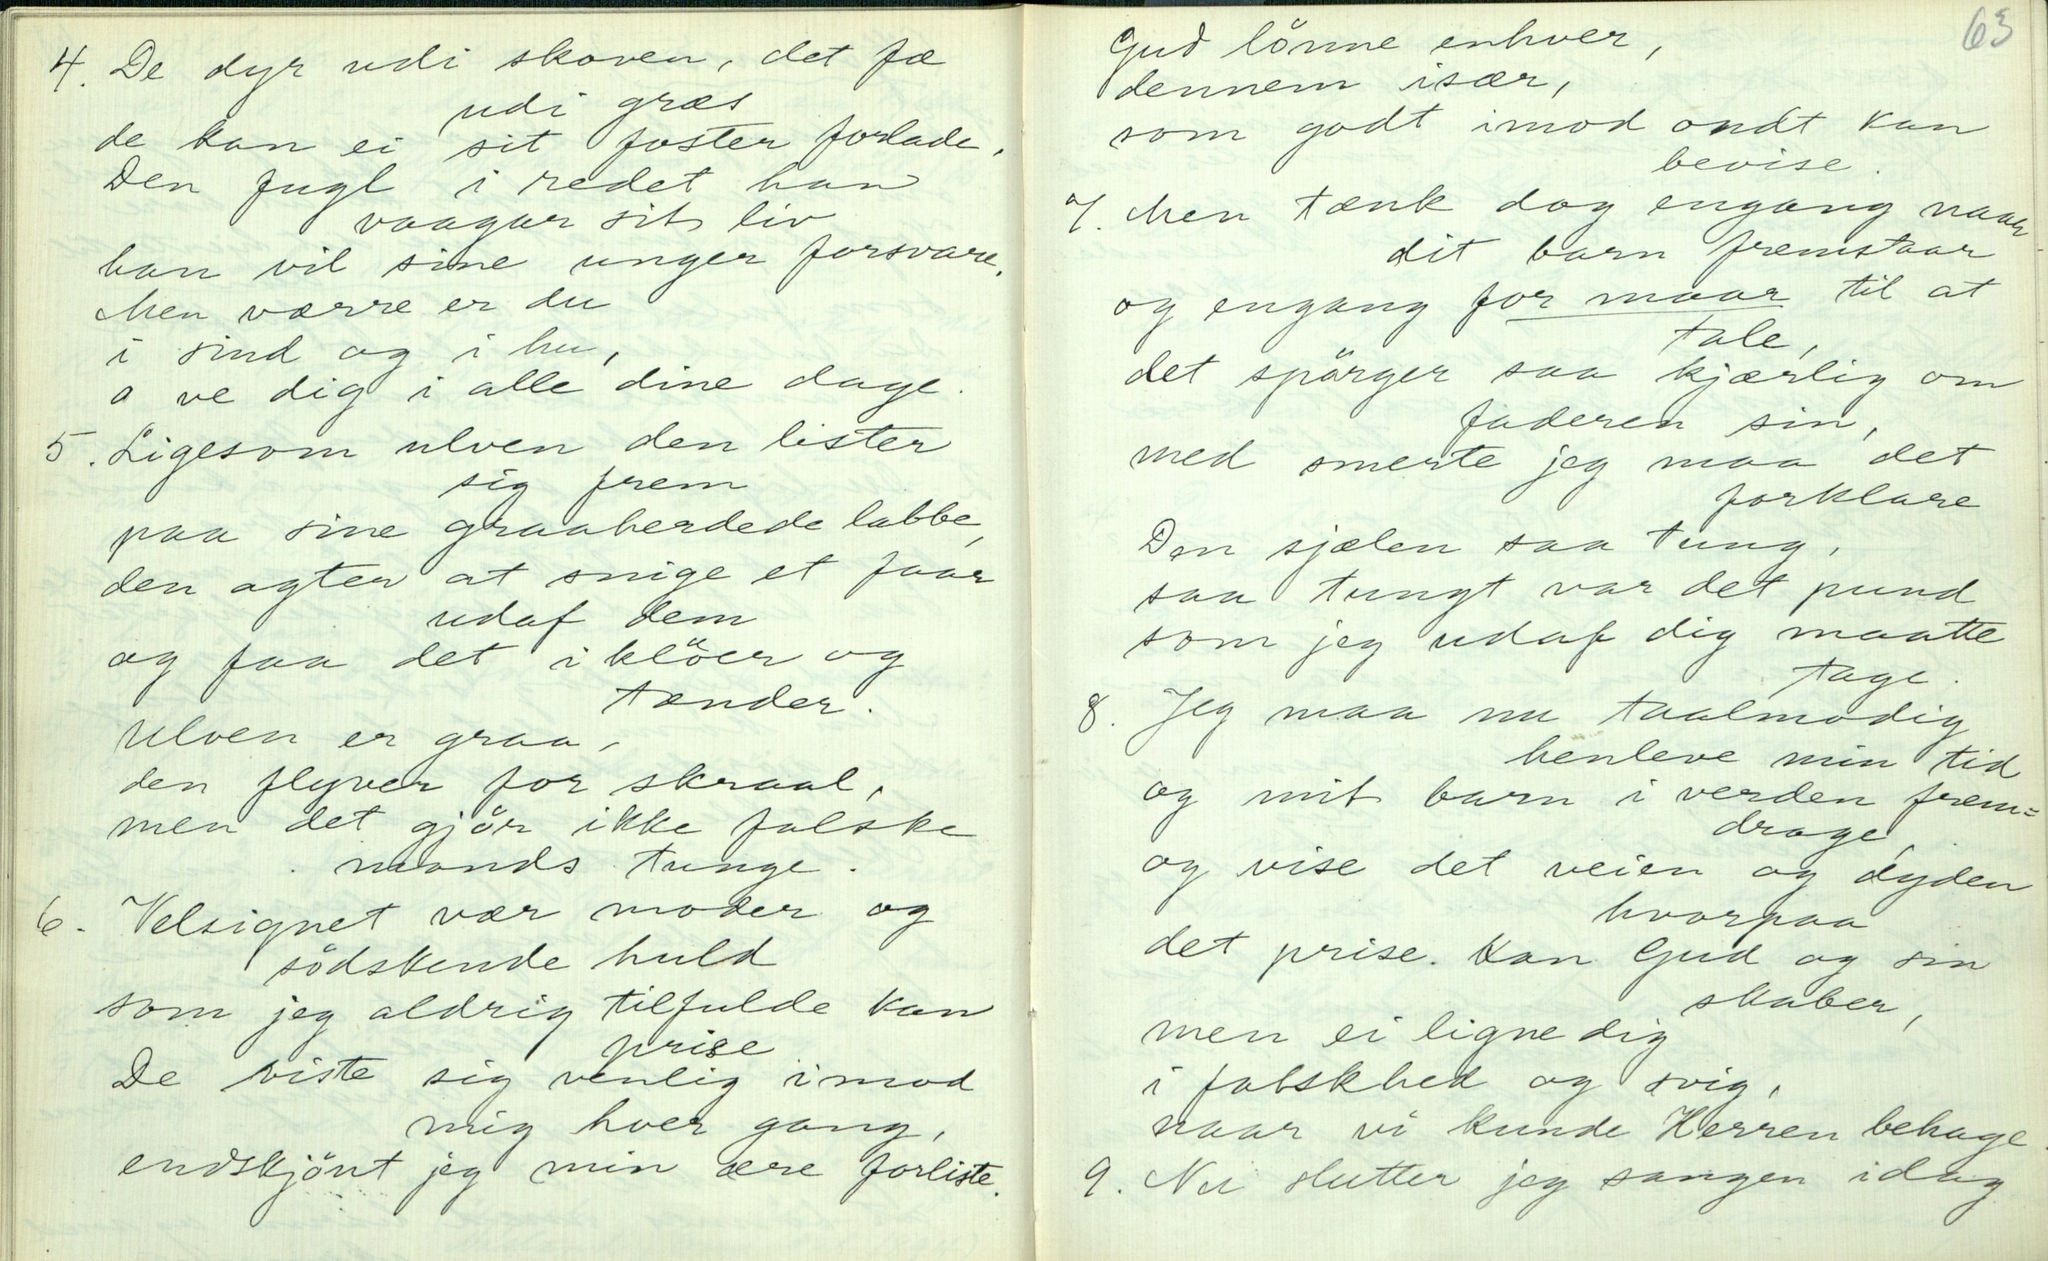 4. De dyr udi skoven, det fæ
udi græs
de kan ei sit foster forlade,
Den fugl i redet han
vaagar sit liv
han vil sine unger forsvare.
Men værre er du
i sind og i hu,
o ve dig i alle dine dage.
5. Ligesom ulven den lister
sig frem
paa sine graaherdede labbe,
den agter at snige et faar
udaf dem
og faa det i klöer og
tænder.
Ulven er graa,
den flyver for skraal,
men det gjör ikke falske
mands tunge.
6. Velsignet vær moder og
södskende huld
som jeg aldrig tilfulde kan
prise
De viste sig venlig imod
mig hver gang,
endskjönt jeg min ære forliste.
63
Gud lönne enhver,
dennem især,
som godt imod ondt kan
bevise.
7. Men tænk dog engang naar
dit barn fremstaar
og engang for maar til at
tale,
det spörger saa kjærlig om
faderen sin,
med smerte jeg maa det
forklare
Den sjælen saa tung,
saa tungt var det pund
som jeg udaf dig maatte
tage.
8. Jeg maa nu taalmodig
henleve min tid
og mit barn i verden frem=
drage,
og vise det veien og dyden
hvorpaa
det prise. kan Gud og sin
skaber,
men ei ligne dig
i falskhed og svig,
naar vi kunde Herren behage.
9. Nu slutter jeg sangen idag